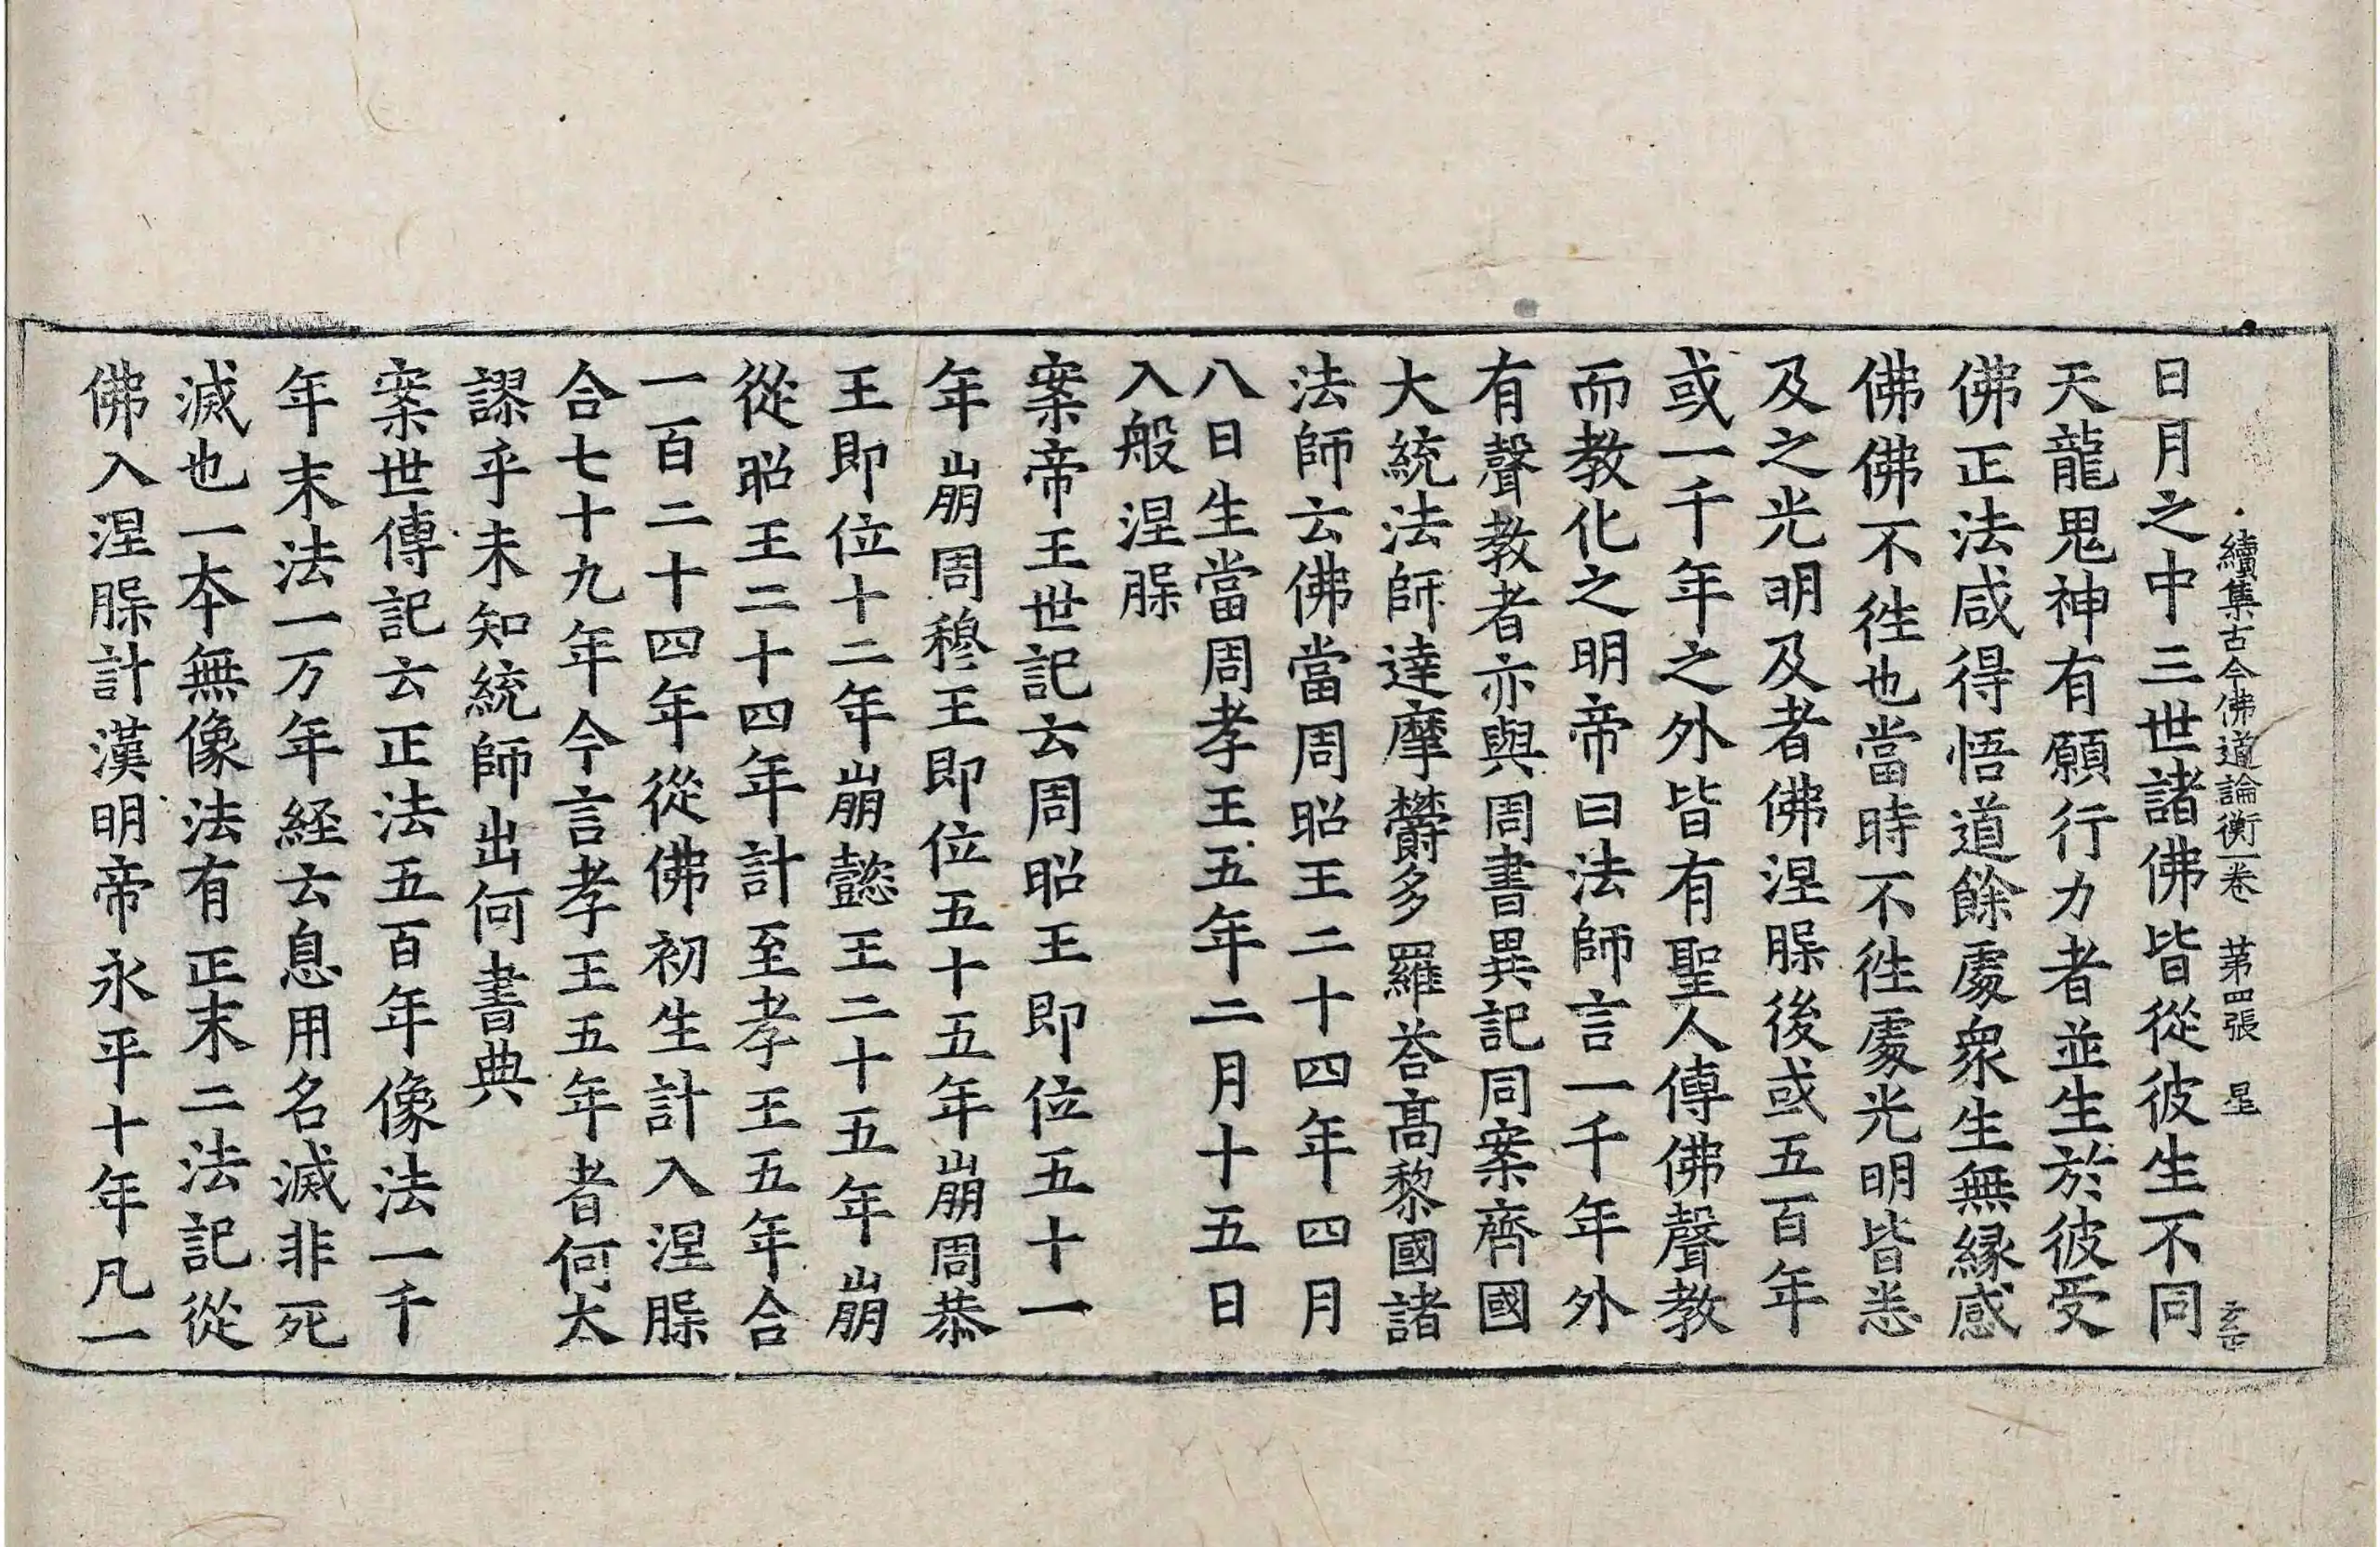 續集古今佛道論衡一卷 苐四張 星
日月之中三世諸佛皆從彼生不同
天龍鬼神有願行力者並生於彼受
佛正法咸得悟道餘處衆生無緣感
佛佛不徃也當時不徃處光明皆悉
及之光明及者佛涅脲後或五百年
或一千年之外皆有聖人傳佛聲教
而教化之明帝曰法師言一千年外
有聲教者亦與周書異記同案齊國
大統法師達摩欝多羅荅高黎國諸
法師云佛當周昭王二十四年四月
八日生當周孝王五年二月十五日
入般涅脲
案帝王世記云周昭王即位五十一
年崩周穆王即位五十五年崩周恭
王即位十二年崩懿王二十五年崩
從昭王二十四年計至孝王五年合
一百二十四年從佛初生計入涅脲
合七十九年今言孝王五年者何太
謬乎未知統師出何書典
案世傳記云正法五百年像法一千
年末法一万年経云息用名滅非死
滅也一本無像法有正末二法記從
佛入涅脲計漢明帝永平十年凡一